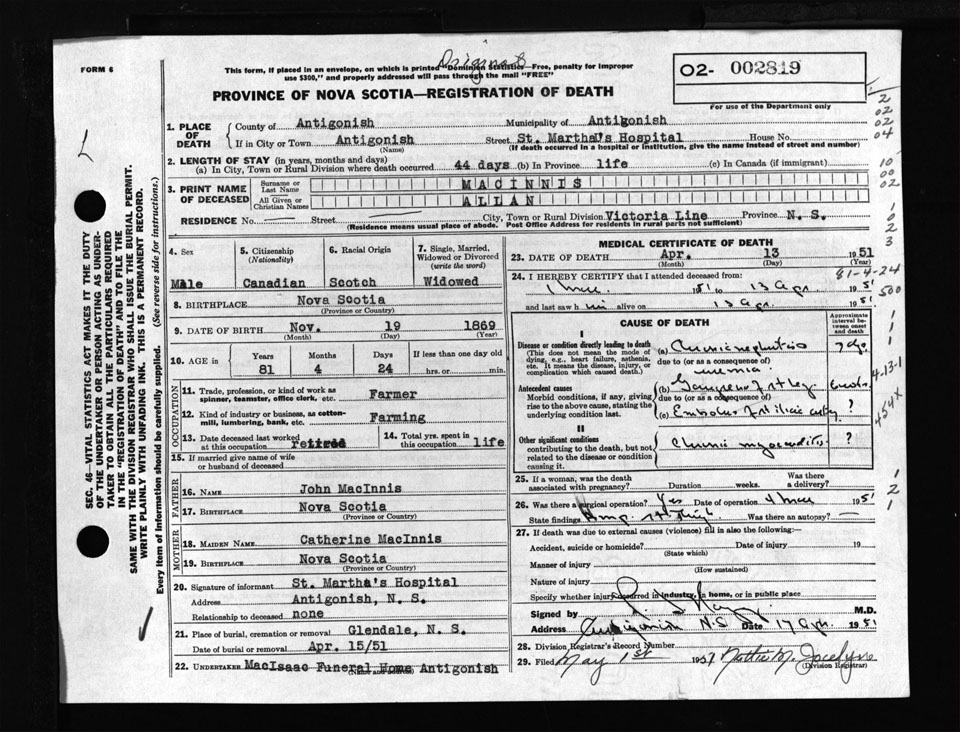 FORM 6
Original
This form, if placed in an envelope, on which is printed "Dominion Statistics—Free, penalty for improper
use $300," and properly addressed will pass through the mail "FREE"
PROVINCE OF NOVA SCOTIA—REGISTRATION OF DEATH
02- 002819
For use of the Department only
1. PLACE OF DEATH County of Antigonish Municipality of Antigonish
If in City or Town Antigonish (Name) Street St. Martha's Hospital House No.
(If death occurred in a hospital or institution, give the name instead of street and number)
2. LENGTH OF STAY (in years, months and days)
(a) In City, Town or Rural Division where death occurred 44 days (b) In Province life (c) In Canada (if immigrant)
3. PRINT NAME OF DECEASED Surname or Last Name MACINNIS
All Given or Christian Names ALLAN
RESIDENCE No. Street City, Town or Rural Division Victoria Line Province N. S.
(Residence means usual place of abode. Post Office Address for residents in rural parts not sufficient)
4. Sex 5. Citizenship (Nationality) 6. Racial Origin 7. Single, Married, Widowed or Divorced (write the word)
Male Canadian Scotch Widowed
8. BIRTHPLACE Nova Scotia
(Province or Country)
9. DATE OF BIRTH Nov. 19 1869
(Month) (Day) (Year)
10. AGE in Years Months Days If less than one day old
81 4 24 hrs. or min.
OCCUPATION
11. Trade, profession, or kind of work as spinner, teamster, office clerk, etc. Farmer
12. Kind of industry or business, as cotton-mill, lumbering, bank, etc. Farming
13. Date deceased last worked at this occupation retired 14. Total yrs. spent in this occupation life
15. If married give name of wife or husband of deceased
FATHER
16. NAME John MacInnis
17. BIRTHPLACE Nova Scotia
(Province or Country)
MOTHER
18. MAIDEN NAME Catherine MacInnis
19. BIRTHPLACE Nova Scotia
(Province or Country)
20. Signature of informant St. Martha's Hospital
Address Antigonish, N. S.
Relationship to deceased none
21. Place of burial, cremation or removal Glendale, N. S.
Date of burial or removal Apr. 15/51
22. UNDERTAKER MacIsaac Funeral Home Antigonish
(Name and address)
MEDICAL CERTIFICATE OF DEATH
23. DATE OF DEATH Apr. 13 1951
(Month) (Day) (Year)
81-4-24
24. I HEREBY CERTIFY that I attended deceased from:
1951 to 13 Apr. 1951
and last saw him alive on 13 Apr. 1951
CAUSE OF DEATH
Approximate interval between onset and death
I
Disease or condition directly leading to death
(This does not mean the mode of dying, e.g., heart failure, asthenia, etc. It means the disease, injury, or complication which caused death.)
(a) Chronic nephritis
due to (or as a consequence of)
uremia
Antecedent causes
Morbid conditions, if any, giving rise to the above cause, stating the underlying condition last.
(b) Gangrene of rt leg
due to (or as a consequence of)
(c) Embolus of rt iliac artery ?
II
Other significant conditions
contributing to the death, but not related to the disease or condition causing it.
Chronic myocarditis ?
25. If a woman, was the death associated with pregnancy? Duration weeks. Was there a delivery?
26. Was there a surgical operation? Yes Date of operation 1951
State findings Amp. rt thigh Was there an autopsy? —
27. If death was due to external causes (violence) fill in also the following:
Accident, suicide or homicide? Date of injury 19
(State which)
Manner of injury
(How sustained)
Nature of injury
Specify whether injury occurred in industry, in home, or in public place
Signed by M.D.
Address Antigonish N.S. Date 17 Apr. 1951
28. Division Registrar's Record Number
29. Filed May 1st 1951
(Division Registrar)
SEC. 46—VITAL STATISTICS ACT MAKES IT THE DUTY
OF THE UNDERTAKER OR PERSON ACTING AS UNDER-
TAKER TO OBTAIN ALL THE PARTICULARS REQUIRED
IN THE "REGISTRATION OF DEATH" AND TO FILE THE
SAME WITH THE DIVISION REGISTRAR WHO SHALL ISSUE THE BURIAL PERMIT.
WRITE PLAINLY WITH UNFADING INK. THIS IS A PERMANENT RECORD.
Every item of information should be carefully supplied. (See reverse side for instructions.)
2
02
02
04
10
00
02
1
0
2
3
500
1
1
1
4-13-1
454x
1
2
1